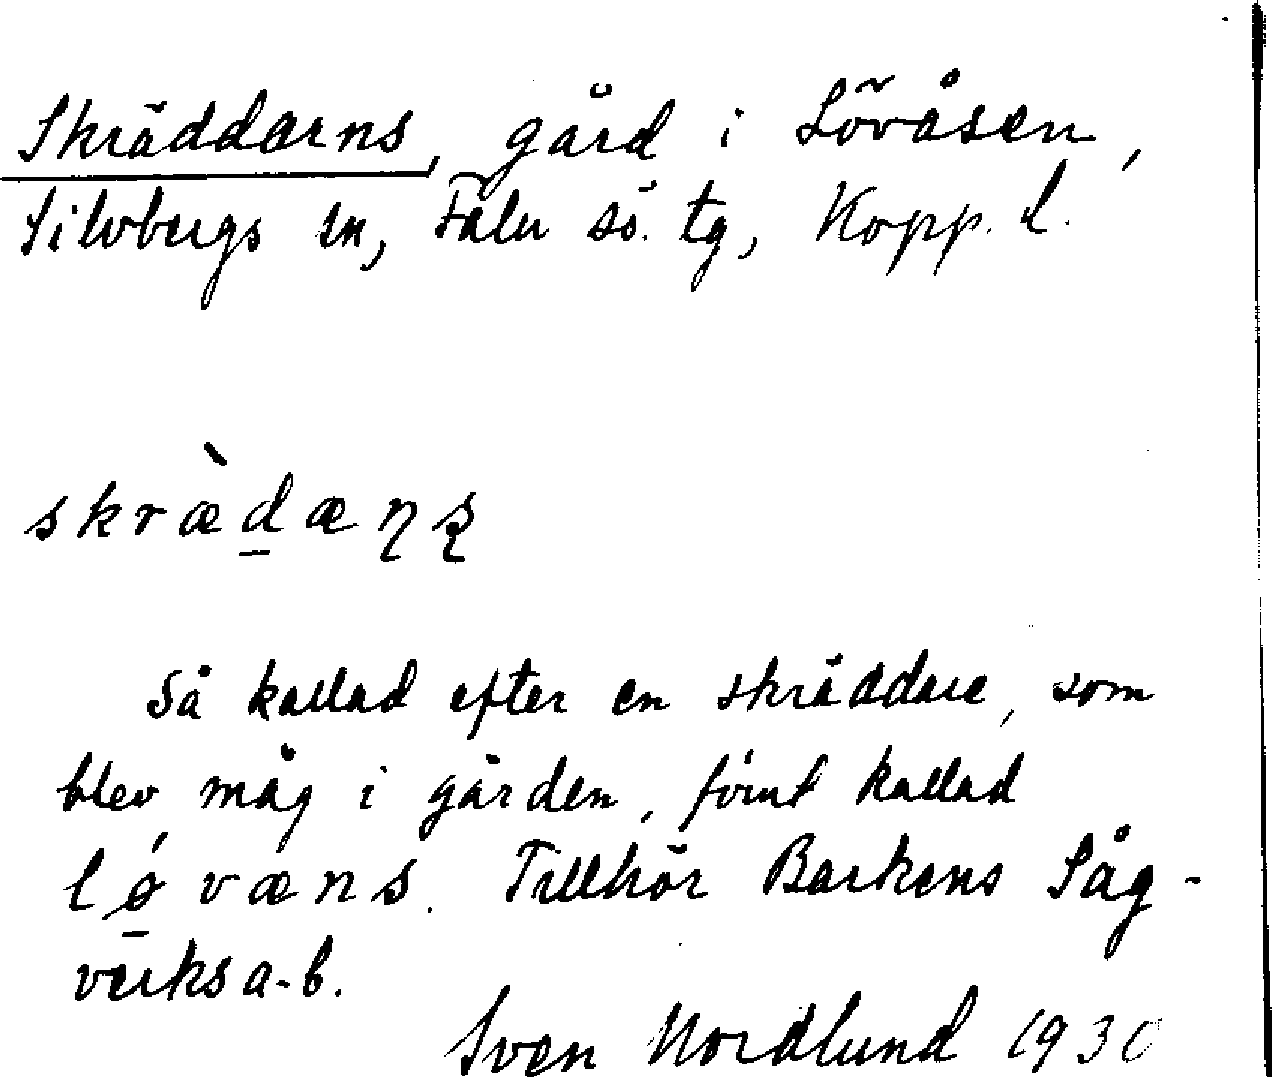 Skräddarns, gård i Lövåsen,
Silvbergs sn, Falu sö. tg, Kopp. l.
skræ̀d̲æṇṣ
Så kallad efter en skräddare, som
blev måg i gården, förut kallad
lǿ̲væns. Tillhör Barkens Såg-
verks a.-b.
Sven Nordlund 1930